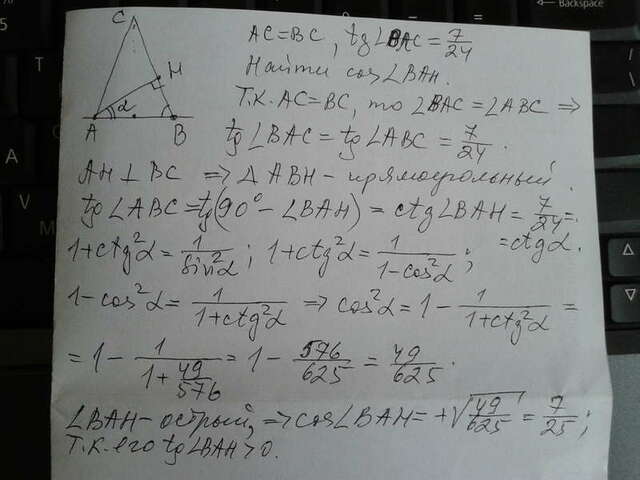 C
H
α
A B
AC=BC, tg∠BAC=7/24
Найти cos∠BAH.
Т.к. AC=BC, то ∠BAC=∠ABC ⇒
tg∠BAC=tg∠ABC=7/24.
AH⊥BC ⇒ ΔABH-прямоугольный.
tg∠ABC=tg(90°-∠BAH)=ctg∠BAH=7/24=
=ctgα.
1+ctg²α=1/sin²α; 1+ctg²α=1/(1-cos²α);
1-cos²α=1/(1+ctg²α) ⇒ cos²α=1-1/(1+ctg²α)=
=1-1/(1+49/576)=1-576/625=49/625.
∠BAH-острый, ⇒cos∠BAH=+√(49/625)=7/25;
т.к. его tg∠BAH>0.
← Backspace